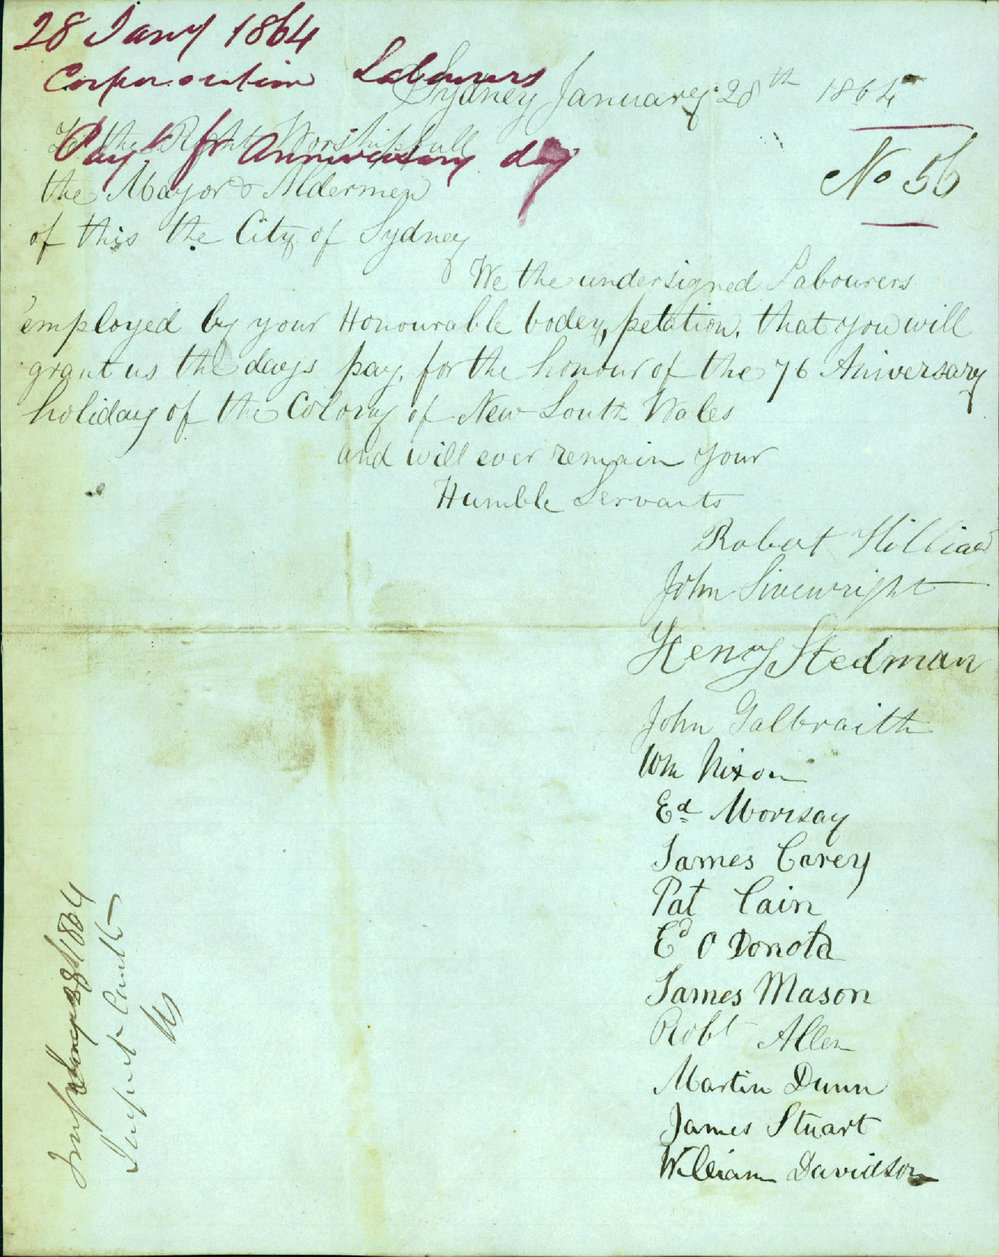 28 Jany 1864
Corporation Labourers
Payt for Anniversary day
Sydney January 28th 1864
No 56
To the Right Worshipfull
the Mayor & Aldermen
of this the City of Sydney
We the undersigned Labourers
employed by your Honourable bodey, petation, that you will
grant us the days pay, for the honour of the 76 Aniversary
holiday of the Colony of New South Wales
and will ever remain your
Humble Servants
Robert Hilliard
John Sivewright
Henry Stedman
John Galbraith
Wm Nixon
Ed Morisay
James Carey
Pat Cain
Ed O Donola
James Mason
Robt Allen
Martin Dunn
James Stuart
William Davidson
28/1864